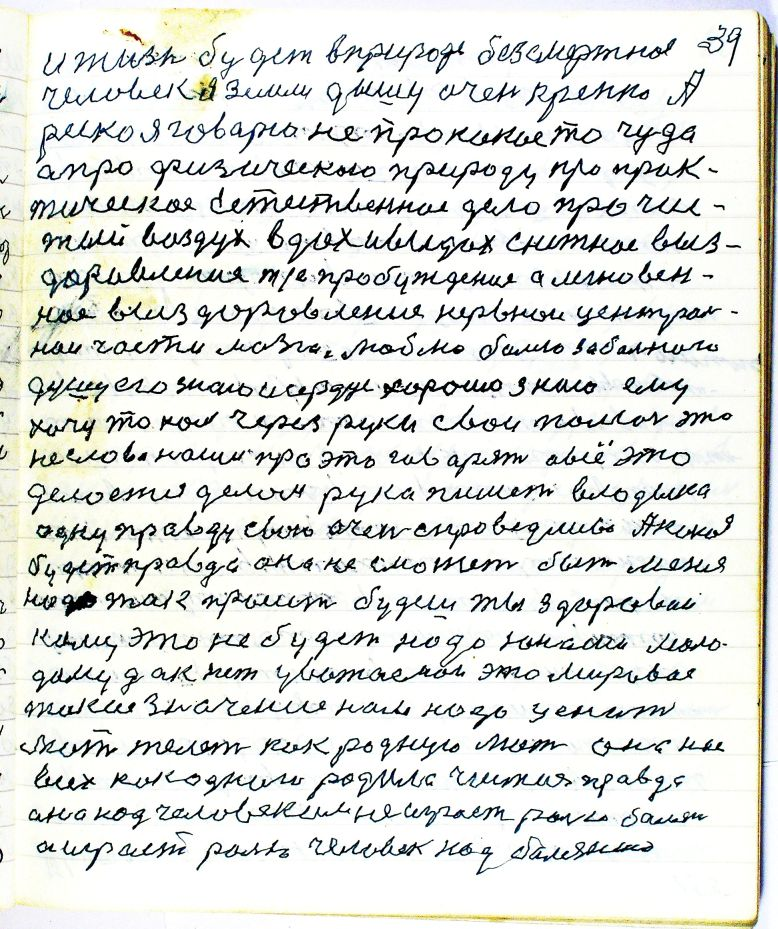 39
и жизн будет в природе безсмертное
человек я Земли дышу очен крепко А
рекой я говарю не про какоето чуда
а про физическаю природу про прак-
тическое естественное дело про чис-
тый воздух вдох и выдох снежное выз-
доравление тже пробуждение а мгновен-
ное выздоровление нервной централ-
ной части мозга, люблю болю забалного
душу его знаю и сердце хорошо знаю ему
хочу током через руки свои помоч это
не слова наши про это говарят а всё это
делается делом рука пишет владыка
одну правду свою очен справедливо А какая
будет правда она не сможет быт меня
надо так просит будеш ты здоровай
каму это не будет надо юнаши моло-
дому дак нет уважаемаи это мировое
такое значение нам надо ценит
мат желет как родную мат она нас
всех как одного родила чистая правда
ана над человеким не играст рол балезн
а играет роль человек над балезнию